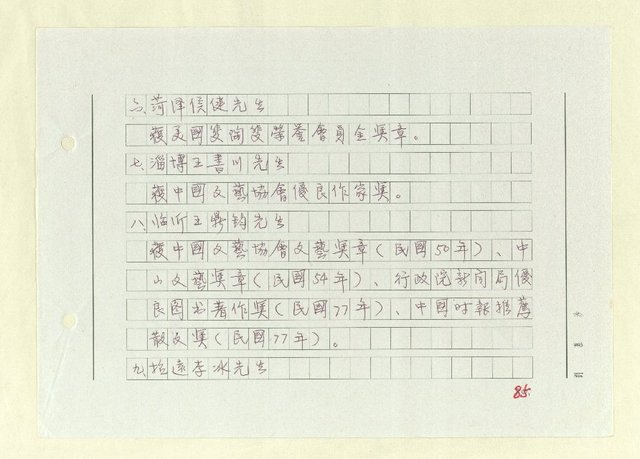 六、菏澤侯健先生
獲美國艾陶榮譽會員金奨章。
七、淄博王書川先生
獲中國文藝協會優良作家奨。
八、临沂王鼎鈞先生
獲中國文藝協會文藝奨章(民國50年)、中
山文藝奨章(民國54年)、行政院新闻局優
良图书著作奨(民國77年)、中國时報推薦
散文奨(民國77年)。
九、招遠李冰先生
85.